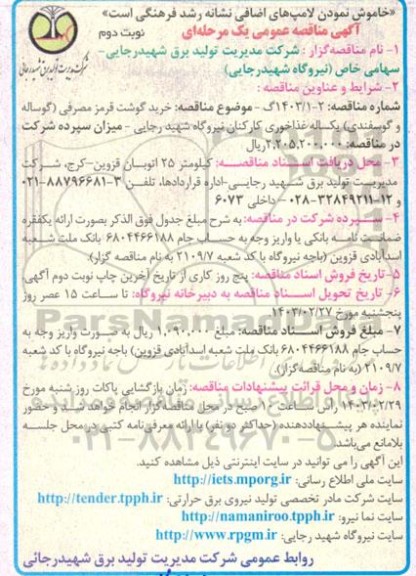 «خاموش نمودن لامپ‌های اضافی نشانه رشد فرهنگی است»
آگهی مناقصه عمومی یک مرحله‌ای
نوبت دوم
شرکت مدیریت تولید برق شهید رجائی
۱- نام مناقصه‌گزار: شرکت مدیریت تولید برق شهیدرجایی-
سهامی خاص (نیروگاه شهیدرجایی)
۲- شرایط و عناوین مناقصه:
شماره مناقصه: ۲-۱۴۰۳/۱گ - موضوع مناقصه: خرید گوشت قرمز مصرفی (گوساله
و گوسفندی) یکساله غذاخوری کارکنان نیروگاه شهید رجایی - میزان سپرده شرکت
در مناقصه: ۲،۲۰۵،۲۰۰،۰۰۰ریال
۳- محل دریافت اسناد مناقصه: کیلومتر ۲۵ اتوبان قزوین-کرج، شرکت
مدیریت تولید برق شهید رجایی-اداره قراردادها، تلفن ۳-۸۸۷۹۶۶۸۱-۰۲۱
و ۱۲-۳۲۸۴۹۲۱۱-۰۲۸ - داخلی ۶۰۷۳
۴- سپرده شرکت در مناقصه: به شرح مبلغ جدول فوق الذکر بصورت ارائه یکفقره
ضمانت نامه بانکی یا واریز وجه به حساب جام ۶۸۰۴۴۶۶۱۸۸ بانک ملت شعبه
اسدآبادی قزوین (باجه نیروگاه با کد شعبه ۲۱۰۹/۷ به نام مناقصه گزار).
۵- تاریخ فروش اسناد مناقصه: پنج روز کاری از تاریخ آخرین چاپ نوبت دوم آگهی
۶- تاریخ تحویل اسناد مناقصه به دبیرخانه نیروگاه: تا ساعت ۱۵ عصر روز
پنجشنبه مورخ ۱۴۰۳/۰۲/۲۷
۷- مبلغ فروش اسناد مناقصه: مبلغ ۱،۰۹۰،۰۰۰ ریال به صورت واریز وجه به
حساب جام ۶۸۰۴۴۶۶۱۸۸ بانک ملت شعبه اسدآبادی قزوین) باجه نیروگاه با کد شعبه
۲۱۰۹/۷ (به نام مناقصه‌گزار).
۸- زمان و محل قرائت پیشنهادات مناقصه: زمان بازگشایی پاکات روز شنبه مورخ
۱۴۰۳/۰۲/۲۹ راس ساعت ۱۰ صبح در محل مناقصه‌گزار انجام خواهد شد و حضور
نماینده هر پیشنهاددهنده (حداکثر دو نفر) با ارائه معرفی‌نامه کتبی در محل جلسه
بلامانع می‌باشد.
این آگهی را می توانید در سایت اینترنتی ذیل مشاهده کنید.
سایت ملی اطلاع رسانی: http://iets.mporg.ir
سایت شرکت مادر تخصصی تولید نیروی برق حرارتی: http://tender.tpph.ir
سایت نما نیرو: http://namaniroo.tpph.ir
سایت نیروگاه شهید رجایی: http://www.rpgm.ir
روابط عمومی شرکت مدیریت تولید برق شهیدرجائی
ParsNamadData
۰۲۱-۸۸۳۴۹۶۷۰-۵